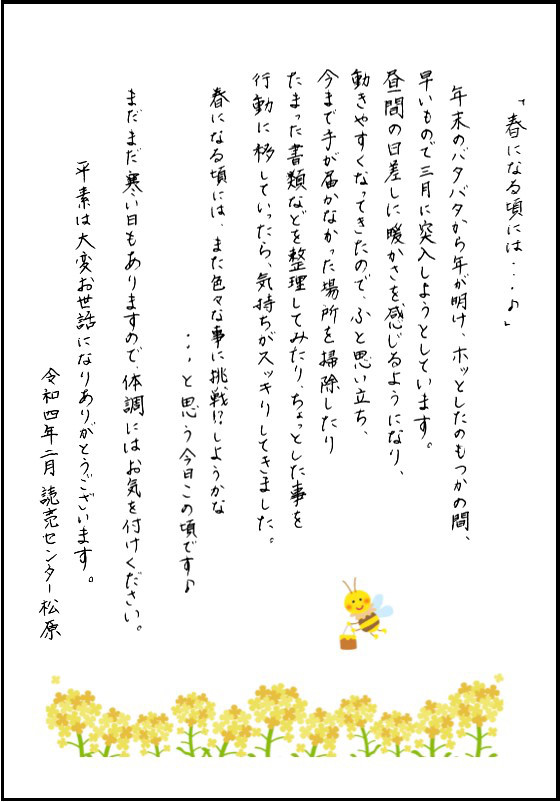 「春になる頃には・・・♪」
年末のバタバタから年が明け、ホッとしたのもつかの間、
早いもので三月に突入しようとしています。
昼間の日差しに暖かさを感じるようになり、
動きやすくなってきたので、ふと思い立ち、
今まで手が届かなかった場所を掃除したり
たまった書類などを整理してみたり、ちょっとした事を
行動に移していったら、気持ちがスッキリしてきました。
春になる頃には、また色々な事に挑戦!?しようかな
・・・と思う今日この頃です♪
まだまだ寒い日もありますので、体調にはお気を付けください。
平素は大変お世話になりありがとうございます。
令和四年二月 読売センター松原